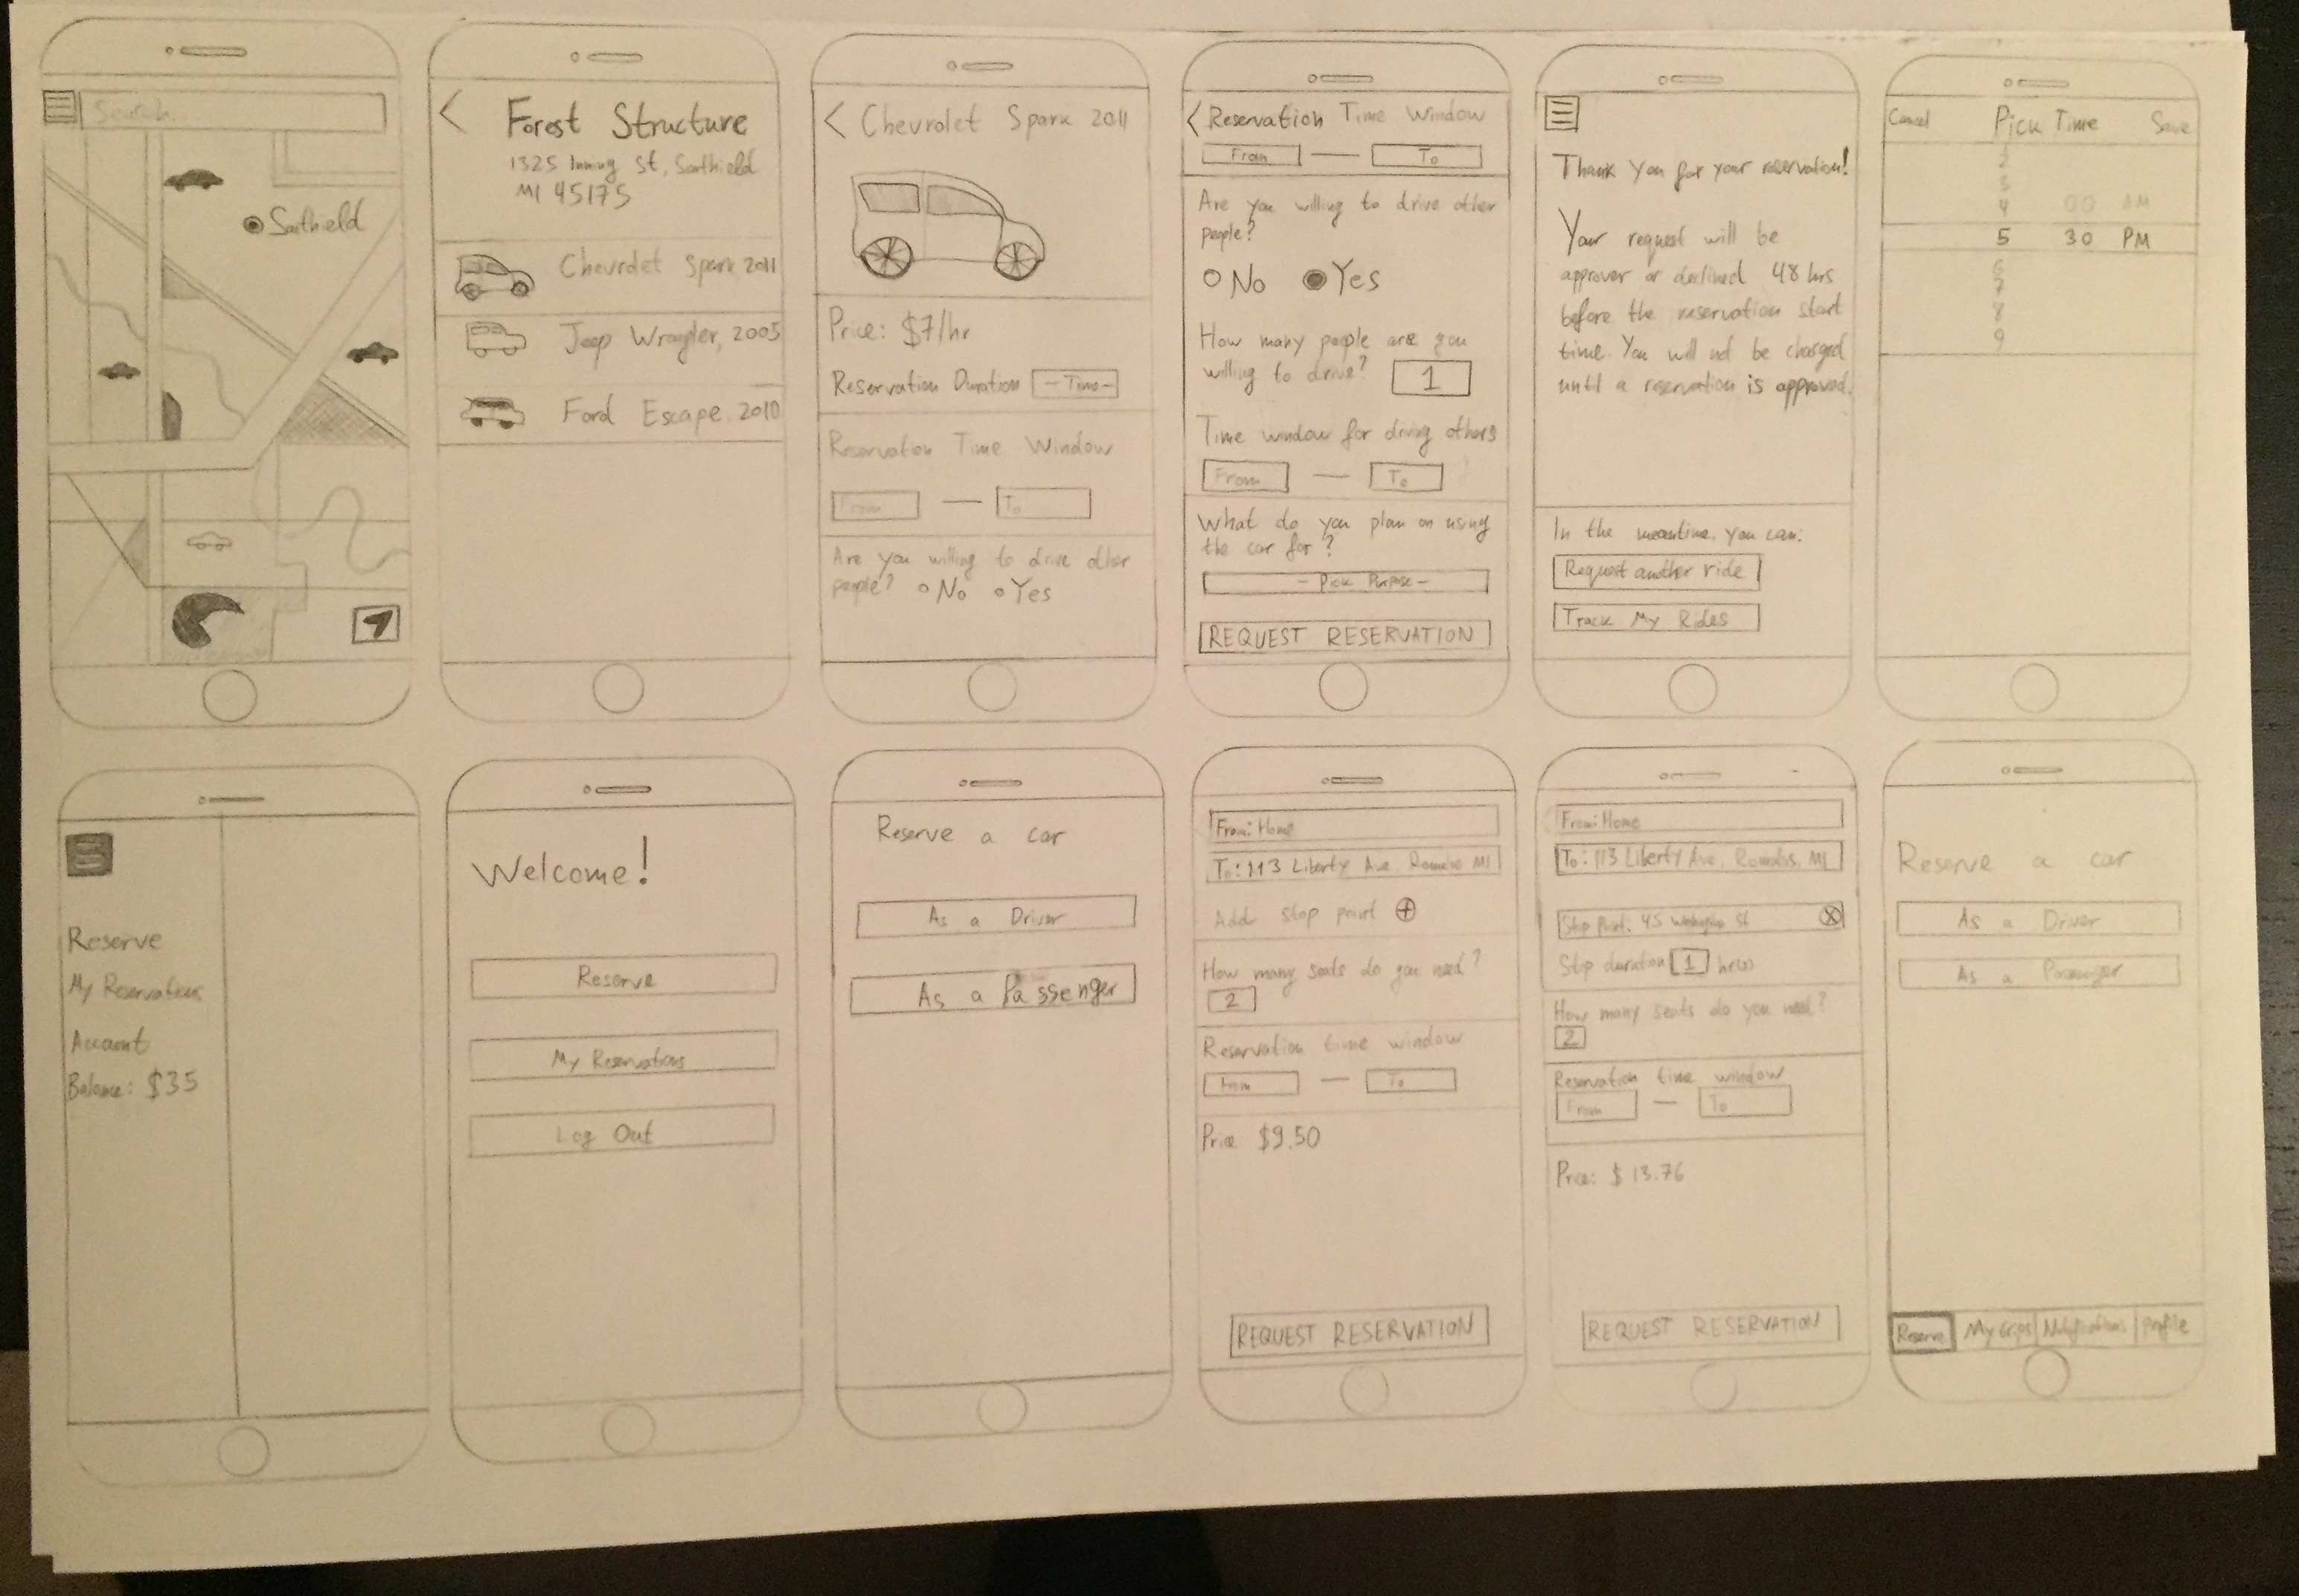 Search...
Southield
Forest Structure
1325 Inning St, Southield
MI 45175
Chevrolet Spark 2011
Jeep Wrangler, 2005
Ford Escape. 2010
Chevrolet Spark 2011
Price: $7/hr
Reservation Duration -Time-
Reservation Time Window
From — To
Are you willing to drive other
people? No Yes
Reservation Time Window
From — To
Are you willing to drive other
people?
No Yes
How many people are you
willing to drive? 1
Time window for driving others
From — To
What do you plan on using
the car for?
- Pick Purpose -
REQUEST RESERVATION
Thank you for your reservation!
Your request will be
approver or declined 48 hrs
before the reservation start
time. You will not be charged
until a reservation is approved.
In the meantime, you can:
Request another ride
Track My Rides
Cancel Pick Time Save
2
3
4 00 AM
5 30 PM
6
7
8
9
Reserve
My Reservations
Account
Balance: $35
Welcome!
Reserve
My Reservations
Log Out
Reserve a car
As a Driver
As a Passenger
From: Home
To: 113 Liberty Ave. MI
Add stop point
How many seats do you need?
2
Reservation time window
From — To
Price $9.50
REQUEST RESERVATION
From: Home
To: 113 Liberty Ave, Romulus, MI
Stop Point: 45 St
Stop duration 1 hr(s)
How many seats do you need?
2
Reservation time window
From — To
Price: $13.76
REQUEST RESERVATION
Reserve a car
As a Driver
As a Passenger
Reserve My trips Notifications Profile